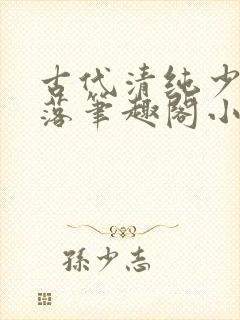 古代清纯少
落笔趣阁小
孫少志